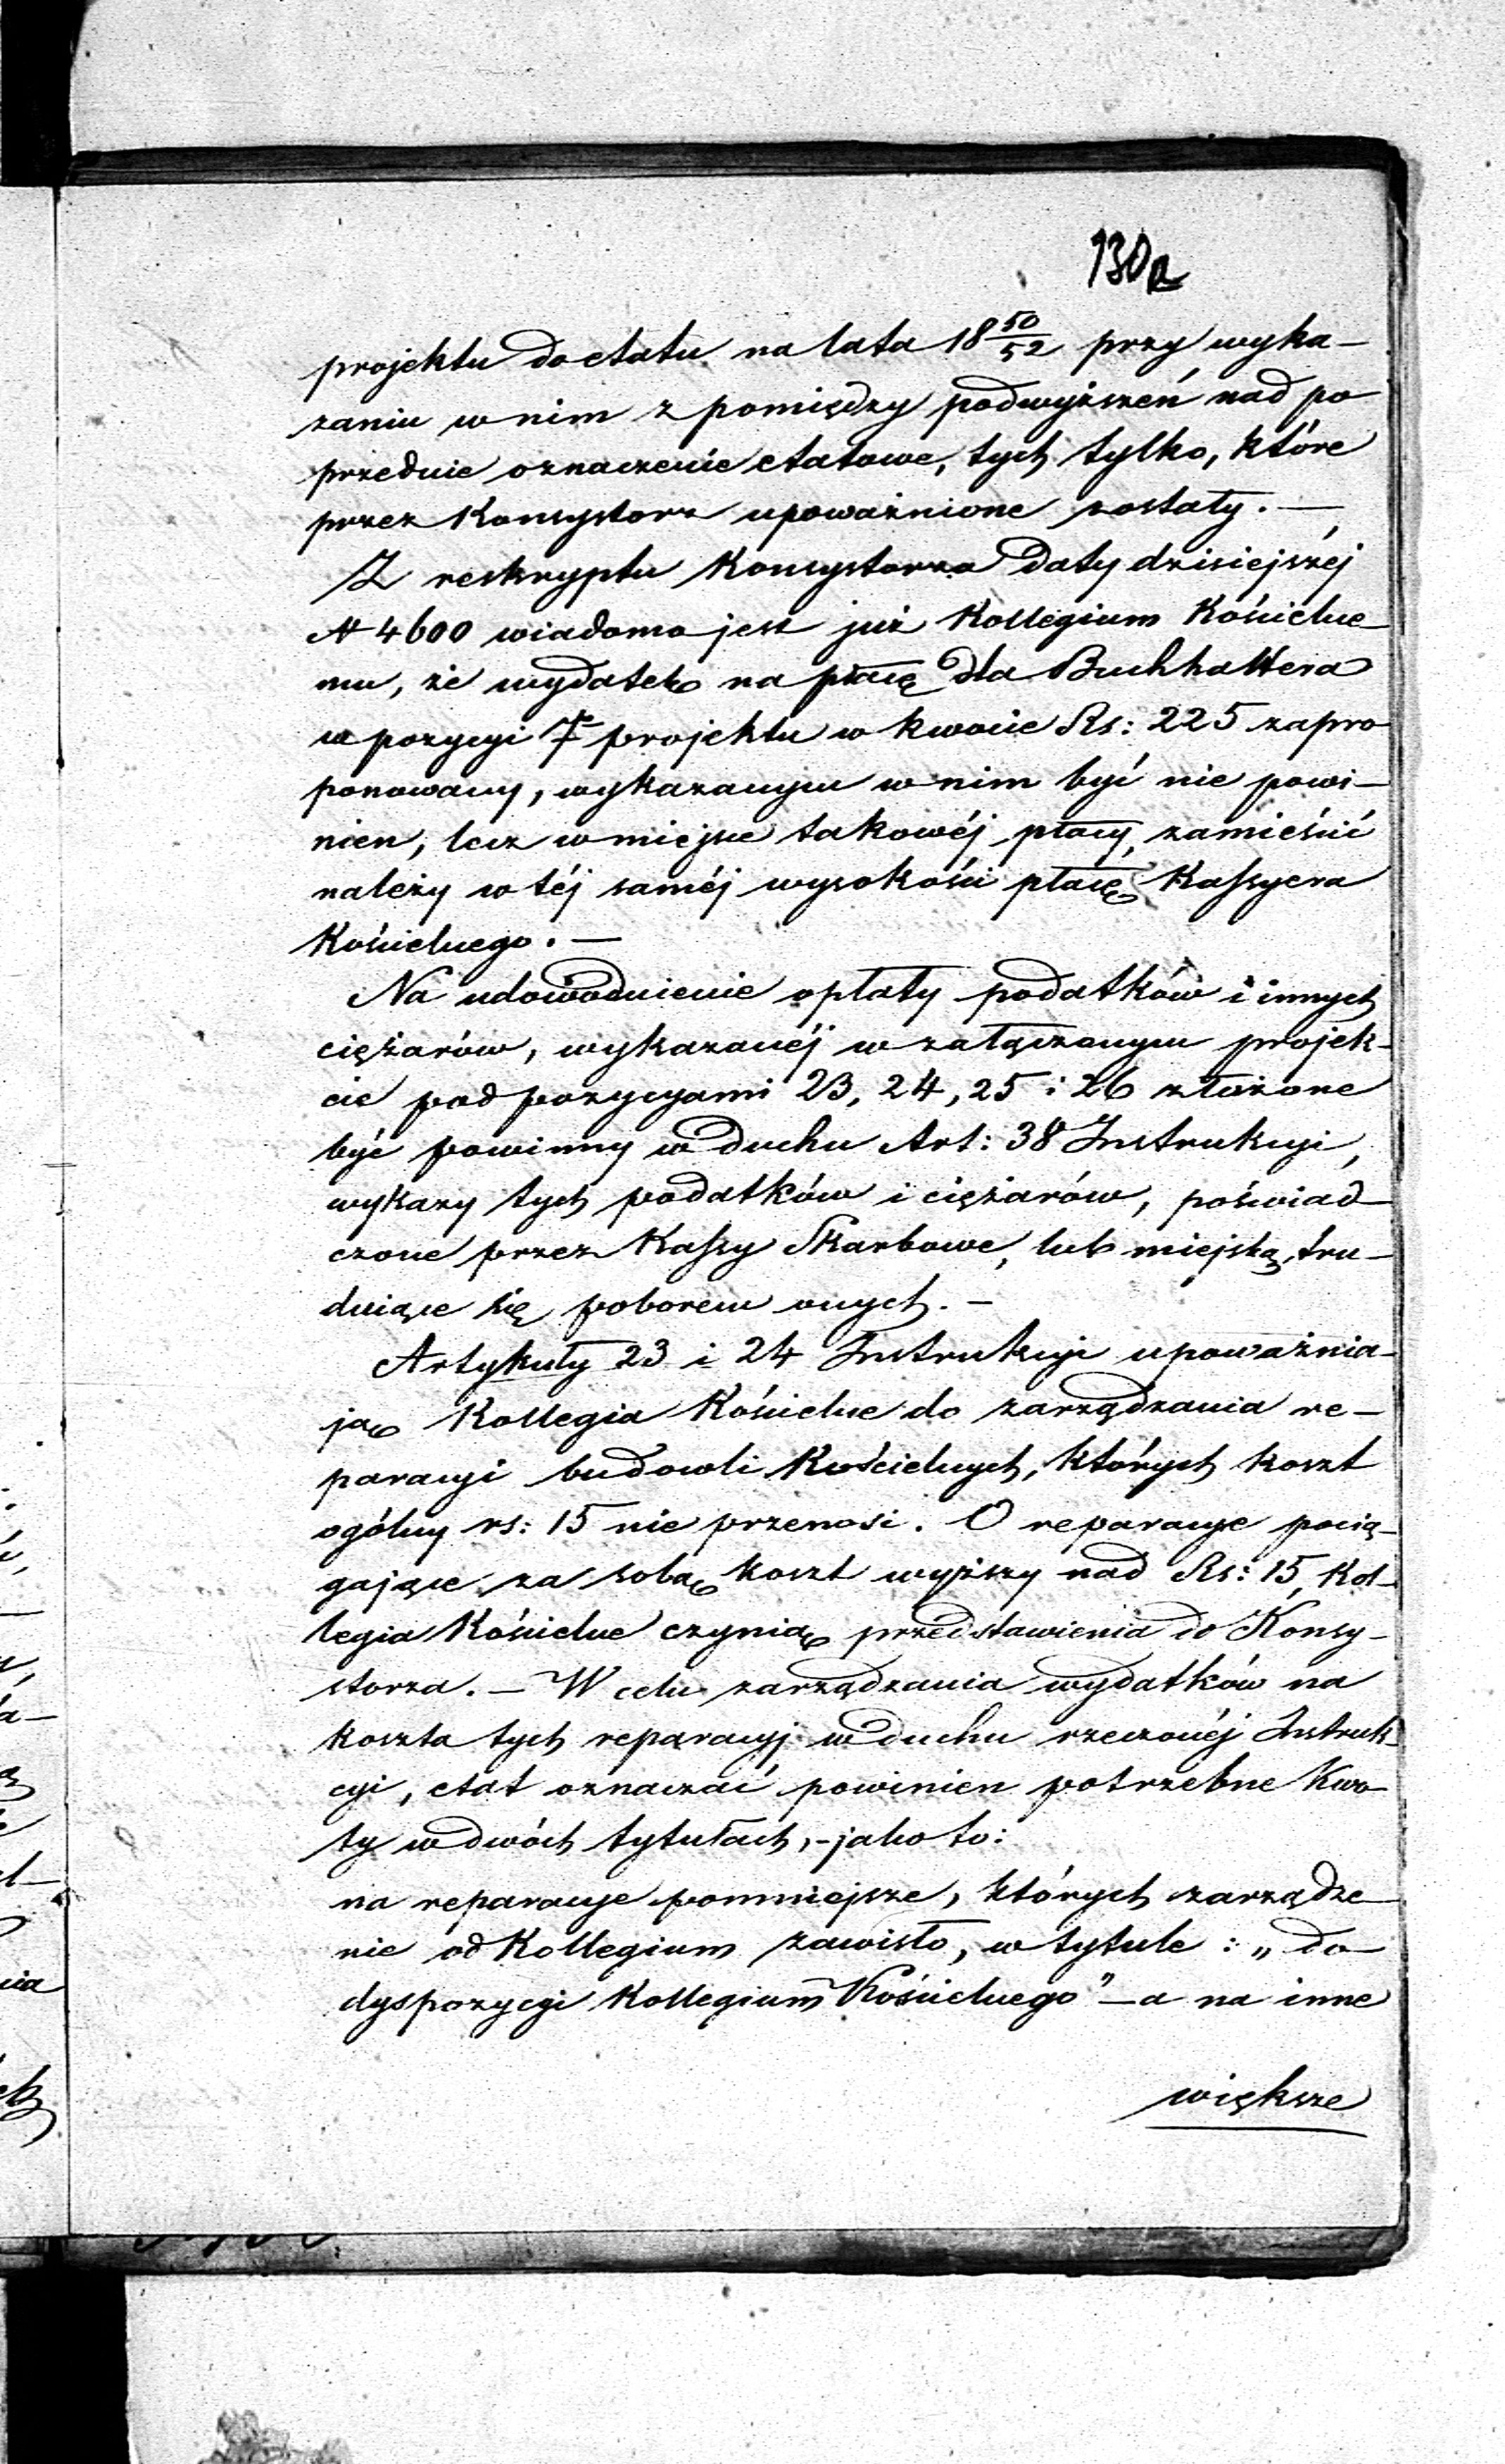 130
projektu do etatu na lata 18 50/52 przy wyka-
zaniu w nim z pomiędzy podwyższeń nad po-
przednie oznaczenie etatowe, tych tylko, które
przez Konsystorz upoważnione zostały. —
Z reskryptu Konsystorza daty dzisiejszéj
N 4600 wiadomo jest już Kollegium Kościelne-
mu, że wydatek na płacę dla Buchhaltera
w pozycyi 7 projektu w kwocie Rs: 225 zapro-
ponowany, wykazanym w nim być nie powi-
nien, lecz w miejsce takowéj płacy, zamieścić
należy w téj saméj wysokości płacę Kassyera
Kościelnego. —
Na udowodnienie opłaty podatków i innych
ciężarów, wykazanéj w załączonym projek-
cie pod pozycyami 23, 24, 25 i 26 złożone
być powinny w duchu Art: 38 Instrukcyi,
wykazy tych podatków i ciężarów, poświad-
czone przez Kassy Skarbowe, lub miejską, tru-
dniące się poborem onych. —
Artykuły 23 i 24 Instrukcyi upoważnia-
ją Kollegia Kościelne do zarządzania re-
paracyi budowli Kościelnych, których koszt
ogólny rs: 15 nie przenosi. O reparacye pocią-
gające za sobą koszt wyższy nad Rs: 15, Kol-
legia Kościelne czynią przedstawienia do Konsy-
storza. — W celu zarządzania wydatków na
koszta tych reparacyj w duchu rzeczonéj Instruk-
cyi, etat oznaczać powinien potrzebne kwo-
ty w dwóch tytułach, - jako to:
na reparacye pomniejsze, których zarządze-
nie od Kollegium zawisło, w tytule: „do
dyspozycyi Kollegium Kościelnego” — a na inne
większe